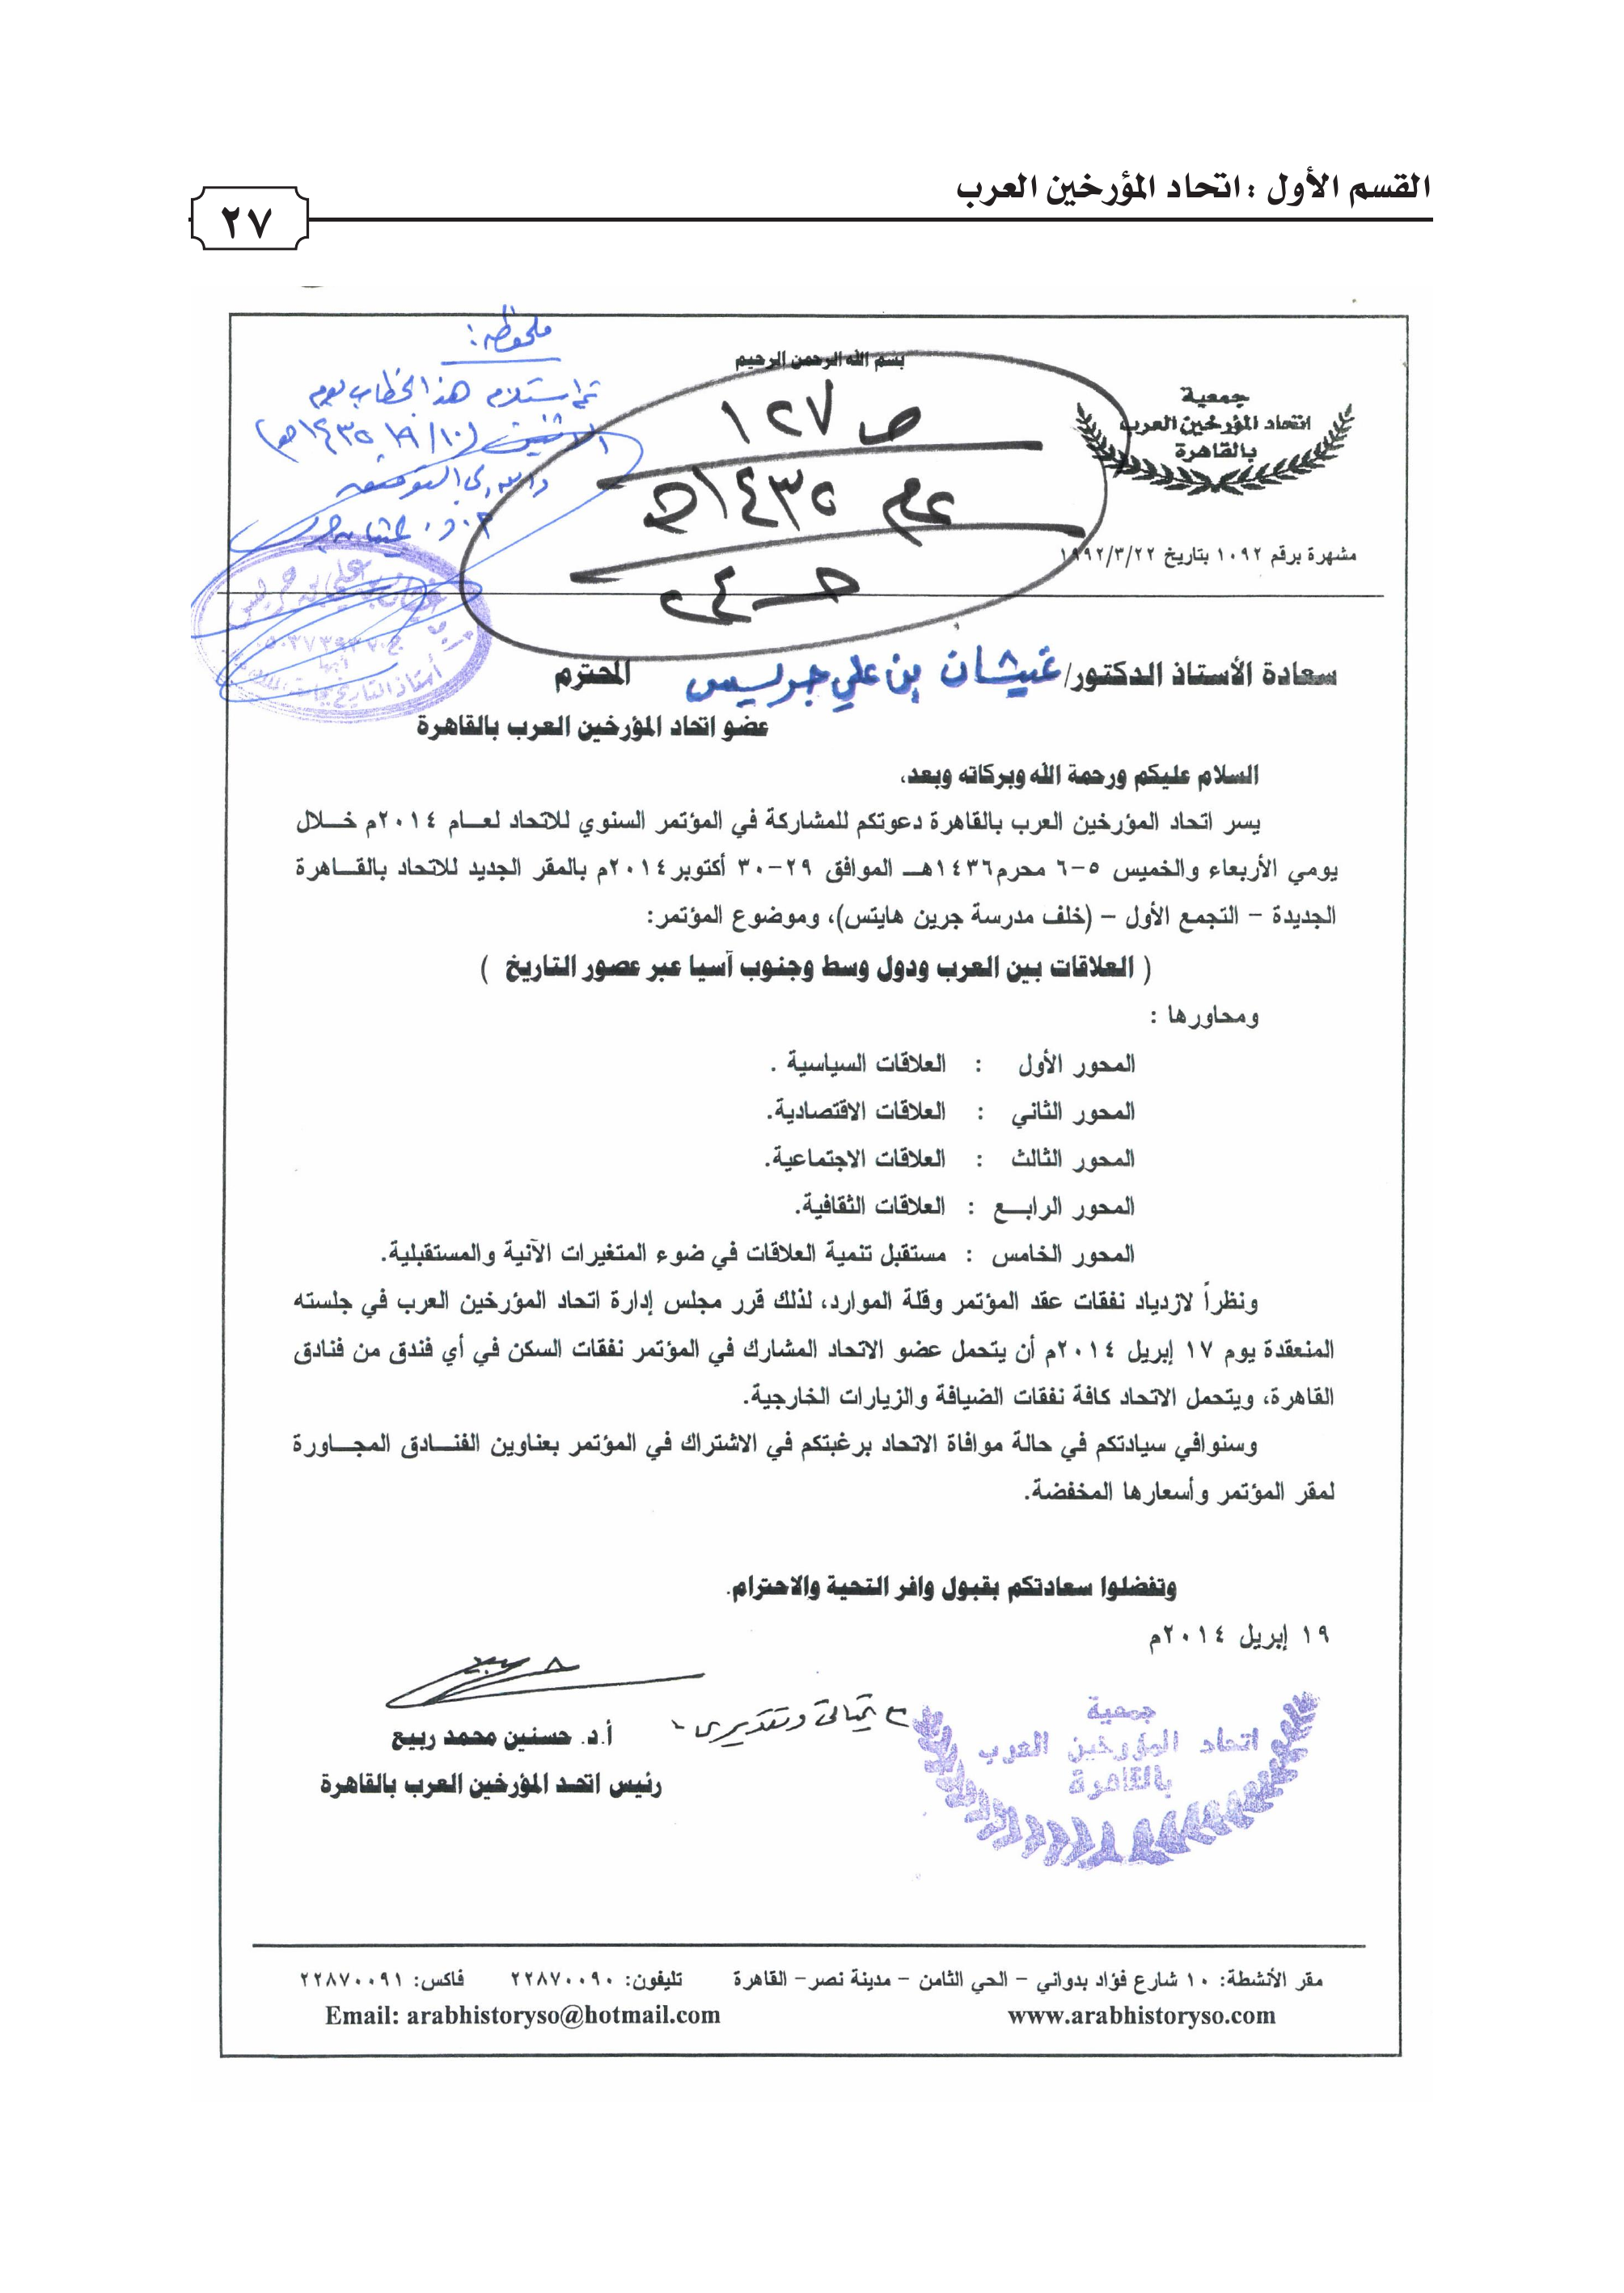 القسم الأول : اتحاد المؤرخين العرب
٢٧
ملحوظة:
تم استلام هذا الخطاب يوم
الاثنين
بسم الله الرحمن الرحيم
ص ١٢٧
عام ١٤٣٥هـ
جمعية
اتحاد المؤرخين العرب
بالقاهرة
مشهرة برقم ١٠٩٢ بتاريخ ١٩٩٢/٣/٢٢
سعادة الأستاذ الدكتور/ غيثان بن علي جريس المحترم
عضو اتحاد المؤرخين العرب بالقاهرة
السلام عليكم ورحمة الله وبركاته وبعد،
يسر اتحاد المؤرخين العرب بالقاهرة دعوتكم للمشاركة في المؤتمر السنوي للاتحاد لعـام ٢٠١٤م خـلال
يومي الأربعاء والخميس ٥-٦ محرم١٤٣٦هـ الموافق ٢٩-٣٠ أكتوبر٢٠١٤م بالمقر الجديد للاتحاد بالقـاهرة
الجديدة - التجمع الأول - (خلف مدرسة جرين هايتس)، وموضوع المؤتمر:
( العلاقات بين العرب ودول وسط وجنوب آسيا عبر عصور التاريخ )
ومحاورها :
المحور الأول : العلاقات السياسية .
المحور الثاني : العلاقات الاقتصادية.
المحور الثالث : العلاقات الاجتماعية.
المحور الرابـع : العلاقات الثقافية.
المحور الخامس : مستقبل تنمية العلاقات في ضوء المتغيرات الآنية والمستقبلية.
ونظراً لازدياد نفقات عقد المؤتمر وقلة الموارد، لذلك قرر مجلس إدارة اتحاد المؤرخين العرب في جلسته
المنعقدة يوم ١٧ إبريل ٢٠١٤م أن يتحمل عضو الاتحاد المشارك في المؤتمر نفقات السكن في أي فندق من فنادق
القاهرة، ويتحمل الاتحاد كافة نفقات الضيافة والزيارات الخارجية.
وسنوافي سيادتكم في حالة موافاة الاتحاد برغبتكم في الاشتراك في المؤتمر بعناوين الفنـادق المجـاورة
لمقر المؤتمر وأسعارها المخفضة.
وتفضلوا سعادتكم بقبول وافر التحية والاحترام.
١٩ إبريل ٢٠١٤م
مع تحياتى وتقديرى
أ.د. حسنين محمد ربيع
رئيس اتحد المؤرخين العرب بالقاهرة
جمعية
اتحاد المؤرخين العرب
بالقاهرة
مقر الأنشطة: ١٠ شارع فؤاد بدواني - الحي الثامن - مدينة نصر- القاهرة تليفون: ٢٢٨٧٠٠٩٠ فاكس: ٢٢٨٧٠٠٩١
Email: arabhistoryso@hotmail.com www.arabhistoryso.com